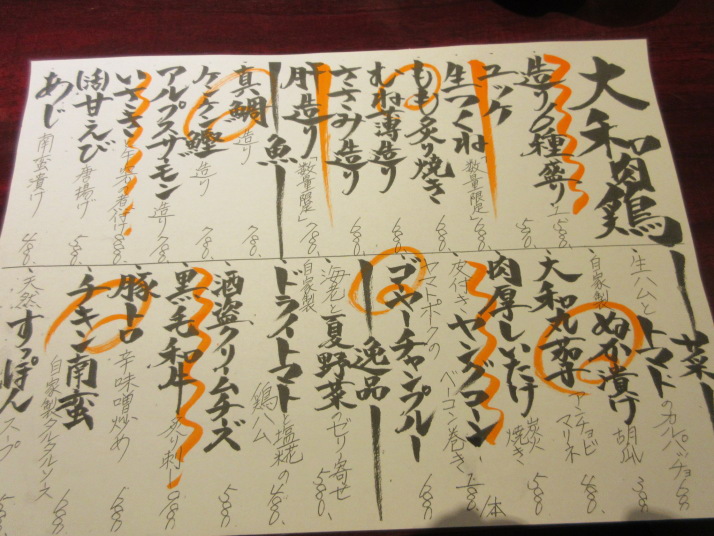 大和肉鶏
造り6種盛り
ユッケ
生つくね「数量限定」
もも炙り焼き
むね薄造り
ささみ造り
肝造り「数量限定」
魚
真鯛 造り
ケンケン鰹 造り
アルプスサーモン 造り
いさき
(活)甘えび 唐揚げ
あじ 南蛮漬け
菜
生ハムとトマトのカルパッチョ
自家製ぬか漬け 胡瓜
大和丸茄子 アンチョビマリネ
肉厚しいたけ 炭火焼き
皮付きヤングコーン
ヤマトポークのベーコン巻き
ゴーヤーチャンプルー
逸品
海老と夏野菜のゼリー寄せ
自家製ドライトマトと塩糀の鶏ハム
酒盗クリームチーズ
黒毛和牛 炙り刺し
豚トロ 辛味噌炒め
チキン南蛮 自家製タルタルソース
天然すっぽんスープ